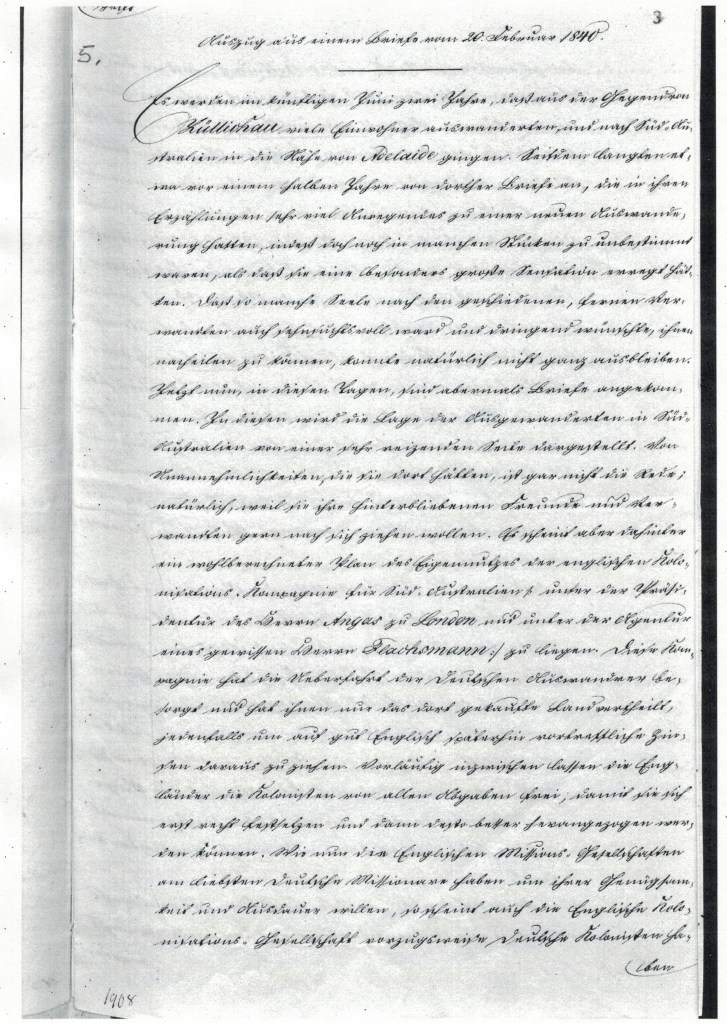 3
5.
Auszug aus einem Briefe vom 20. Februar 1840.
Es werden im künftigen Juni zwei Jahre, daß aus der Gegend von
Züllichau viele Einwohner auswanderten, und nach Süd-Au-
stralien in die Nähe von Adelaide gingen. Seitdem langten et-
wa vor einem halben Jahre von dorther Briefe an, die in ihren
Erzählungen sehr viel Anregendes zu einer neuen Auswande-
rung hatten, indeß doch noch in manchen Stücken zu unbestimmt
waren, als daß sie eine besonders große Sensation erregt hät-
ten. Daß so manche Seele nach den geschiedenen, fernen Ver-
wandten auch sehnsuchtsvoll ward und dringend wünschte, ihnen
nacheilen zu können, konnte natürlich nicht ganz ausbleiben.
Jetzt nun, in diesen Tagen, sind abermals Briefe angekom-
men. In diesen wird die Lage der Ausgewanderten in Süd-
Australien von einer sehr reizenden Seite dargestellt. Von
Unannehmlichkeiten, die sie dort hätten, ist gar nicht die Rede;
natürlich, weil sie ihre hinterbliebenen Freunde und Ver-
wandten gern nach sich ziehen wollen. Es scheint aber dahinter
ein wohlberechneter Plan des Eigennutzes der englischen Kolo-
nisations-Kompagnie für Süd-Australien /: unter der Präsi-
dentur des Herrn Angas zu London und unter der Agentur
eines gewissen Herrn Flachsmann :/ zu liegen. Diese Kom-
pagnie hat die Ueberfahrt der Deutschen Auswandrer be-
sorgt und hat ihnen nur das dort gekaufte Land vertheilt,
jedenfalls um auf gut Englisch späterhin vortreffliche Zin-
sen daraus zu ziehen. Vorläufig inzwischen lassen die Eng-
länder die Kolonisten von allen Abgaben frei, damit sie sich
erst recht festsetzen und dann desto besser herangezogen wer-
den können. Wie nun die Englischen Missions-Gesellschaften
am liebsten Deutsche Missionare haben um ihrer Genügsam-
keit und Ausdauer willen, so scheint auch die Englische Kolo-
nisations-Gesellschaft vorzugsweise Deutsche Kolonisten ha-
ben
1908